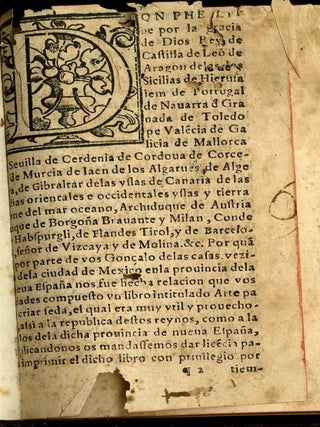 DON PHELIPPE
pe por la gracia
de Dios Rey de
Castilla de Leō de
Aragon delas dos
Sicilias de Hierusa
lem de Portugal
de Nauarra d̄ Gra
nada de Toledo
de Valēcia de Ga
licia de Mallorca
Seuilla de Cerdenia de Cordoua de Corce-
de Murcia de Iaen de los Algarues de Alge
a, de Gibraltar delas yslas de Canaria de las
ias orientales e occidentales yslas y tierra
me del mar oceano, Archiduque de Austria
uque de Borgoña Brauante y Milan, Conde
Habspurgli, de Flandes Tirol, y de Barcelo-
, señor de Vizcaya y de Molina. &c. Por quā
por parte de vos Gonçalo de las casas. vezi-
dela ciudad de Mexico en la prouincia dela
ueua España nos fue hecha relacion que vos
iades compuesto vn libro intitulado Arte pa
criar seda, el qual era muy vtil y prouecho-
, assi a la republica destos reynos, como a la
los dela dicha prouincia de nueua España,
plicandonos os mandassemos dar licēcia pa-
imprimir el dicho libro con priuilegio por
¶ 2 tiem-